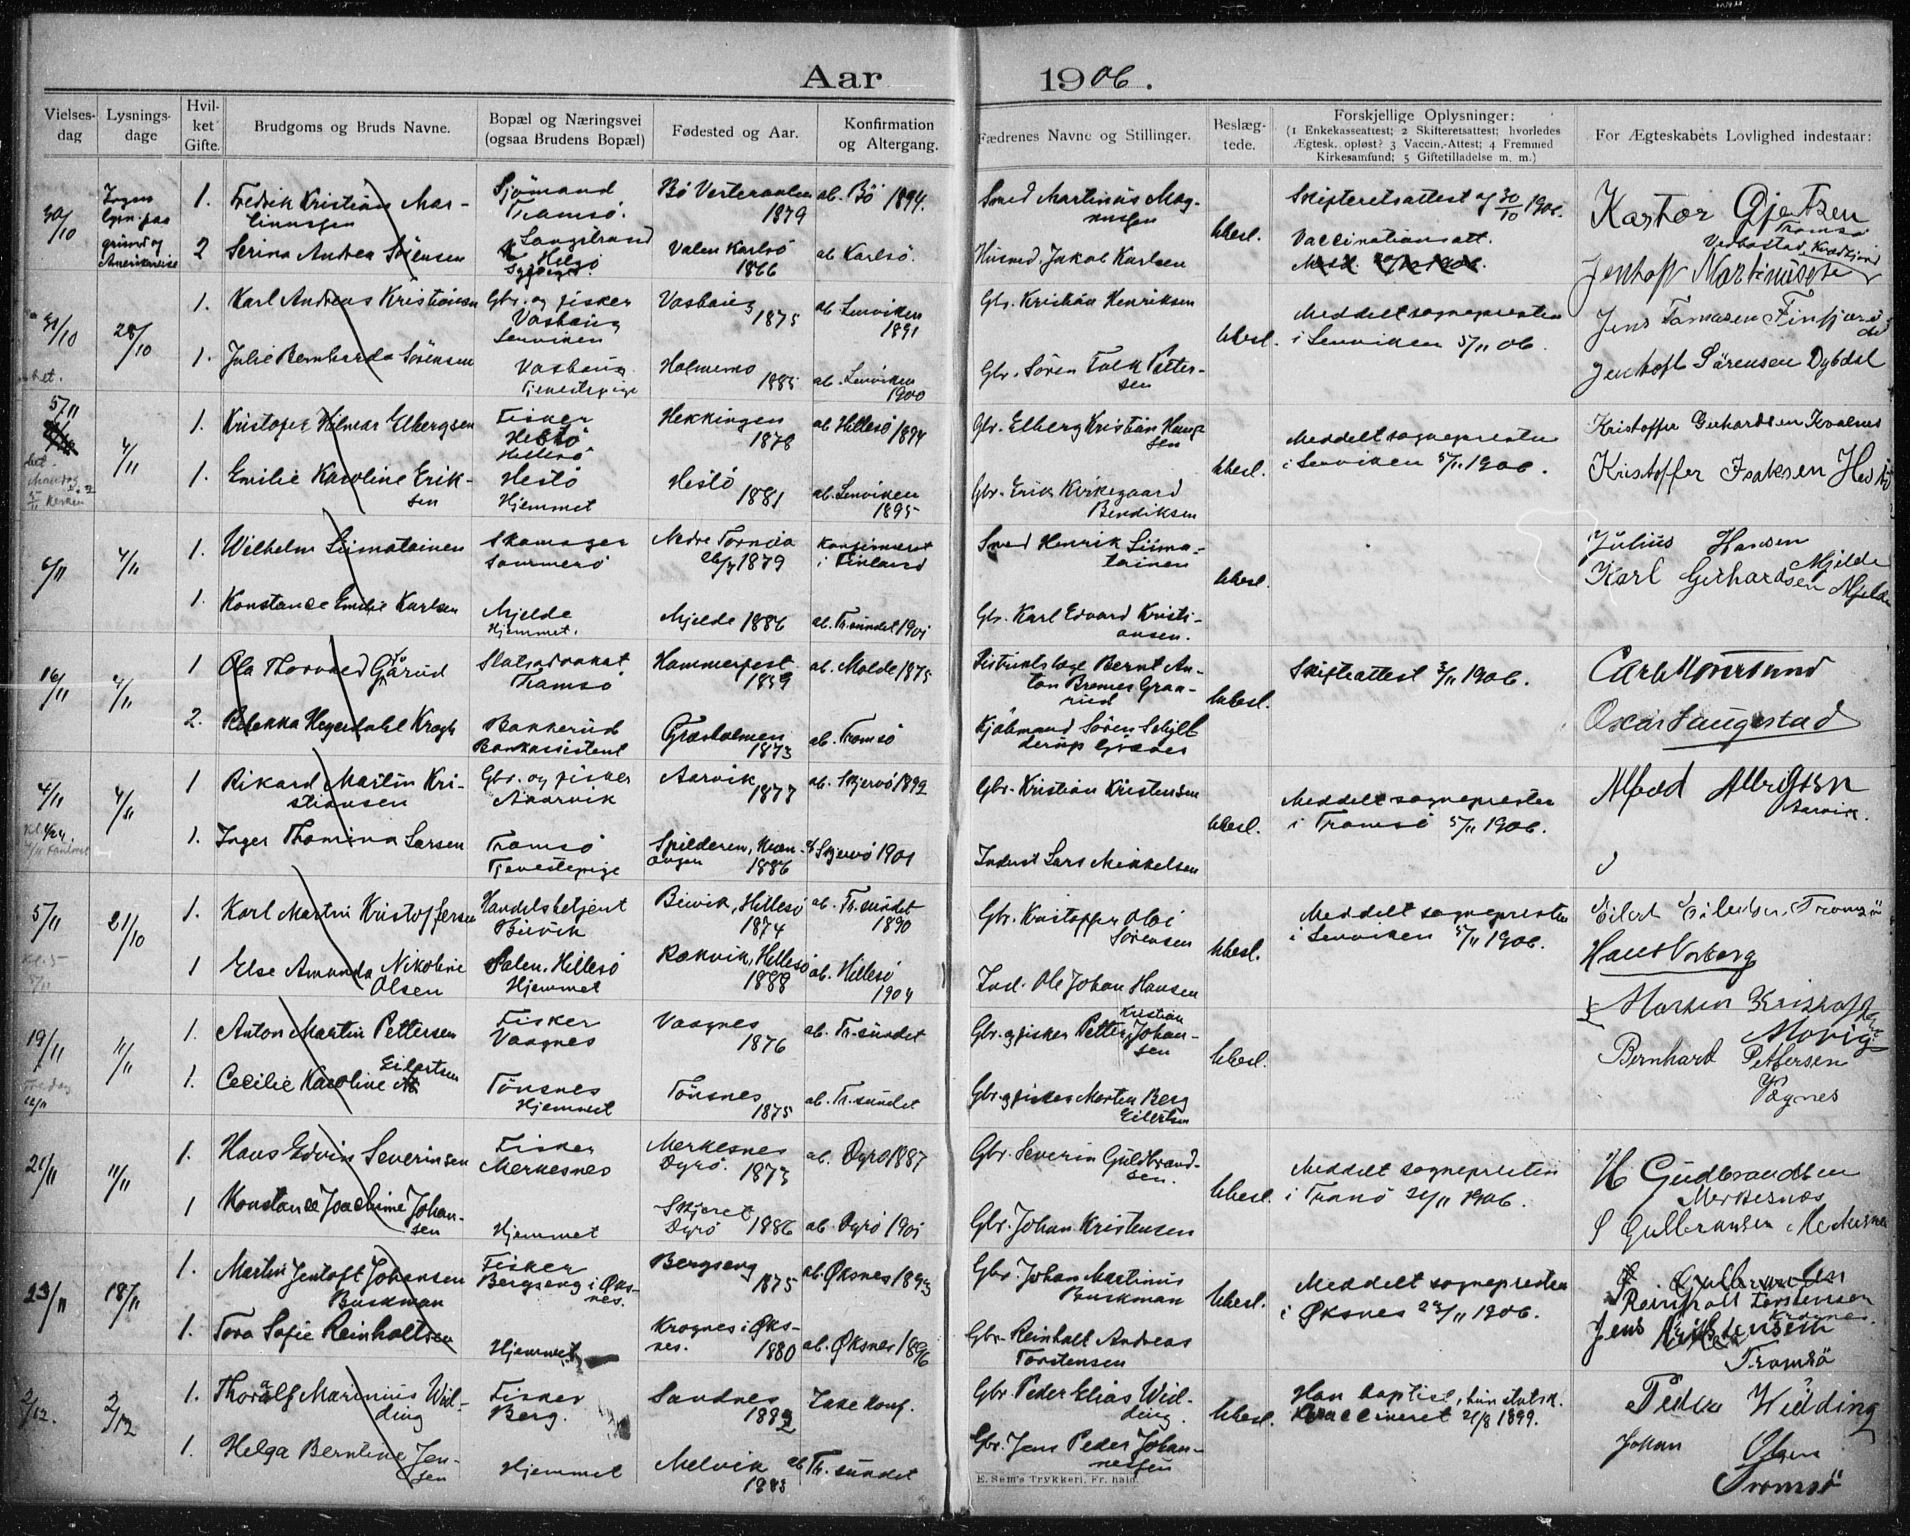 Aar 1906.
Vielses-dag
Lysnings-dage
Hvil-ket Gifte.
Brudgoms og Bruds Navne.
Bopæl og Næringsvei (ogsaa Brudens Bopæl)
Fødested og Aar.
Konfirmation og Altergang.
Fædrenes Navne og Stillinger.
Beslæg-tede.
Forskjellige Oplysninger:
(1 Enkekasseattest; 2 Skifteretsattest; hvorledes
Ægtesk. opløst? 3 Vaccin.-Attest; 4 Fremmed
Kirkesamfund; 5 Giftetilladelse m. m.)
For Ægteskabets Lovlighed indestaar:
30/10
1. Fredrik Kristian Mar-
tinussen
Sjømand
Tromsø.
Bø Vesteraalen
1879
ab. Bø 1894.
Smed Martinus Mag-
nussen
Ubesl.
Skifteretsattest af 30/10 1906.
Vaccinationsatt.
2 Serina Andrea Sørensen
Langstrand
Helgø
Valen Karlsø
1866
ab Karlsø.
Husmd. Jakob Karlsen
Jentoft Martinussen
31/10 28/10
1. Karl Andreas Kristiansen
Gbr. og fisker
Lenviken
1875
ab Lenviken
1891
Gbr. Kristian Henriksen
Ubesl.
Meddelt sognepresten
i Lenviken 5/11 06.
1. Julie Bernharda Sørensen
Tjenestepige
1885
ab. Lenviken
1900
Gbr. Søren Falk Petter-
sen
Jentoft Sørensen Dybdal
5/11 4/11
1. Kristofer Hilmar Elbergsen
Fisker
Hestø
Hillesø
Hekkingen
1878
ab Hillesø 1894
Gbr. Elberg Kristian
sen
Ubesl.
Meddelt sognepresten
i Lenviken 5/11 1906.
1. Emilie Karoline Erik-
sen
Hestø
Hjemmet
Hestø
1881
ab. Lenviken
1895
Gbr. Erik Kirkegaard
Bendiksen
Kristoffer Isaksen Hestø
6/11 4/11
1. Wilhelm Siimatainen
Skomager
Nedre Tornea
1879
Konfirmeret
i Finland
Smed Henrik Siima-
tainen
Ubesl.
Julius Hansen
Mjelde
1. Konstance Emilie Karlsen
Mjelde
Hjemmet.
Mjelde 1886
ab. Tr.sundet 1901
Gbr. Karl Edvard Kristi-
ansen.
Karl Gerhardsen Mjelde
16/11 4/11
1 Ola Thorvaed Gårud
Statsadvokat
Tromsø
Hammerfest
1859
ab. Molde 1875
Distriktslæge Bernt An-
ton Bremer Graa-
rud
Ubesl.
Skifteattest 3/11 1906.
2. Rebekka Hegerdahl Krogh
Bankassistent
Græsholmen
1873
ab. Tromsø
Kjøbmand Søren
Oscar Haugestad
4/11 4/11
1 Rikard Martin Kri-
stiansen
Gbr. og fisker
Aarvik
1877
ab. Skjervø 1892
Gbr. Kristian Kristensen
Ubesl.
Meddelt sognepresten
i Tromsø 5/11 1906.
Alfred Albrigtsen
Aarvik.
1. Inger Thomina Larsen
Tromsø
Tjenestepige
Spilderen, Kvæn-
angen
1886
Skjervø 1901
Inderst Lars Mikkelsen
5/11 21/10
1. Karl Martin Kristoffersen
Handelsbetjent
Bievik, Hillesø
1874
ab. Tr.sundet
1890
Gbr. Kristoffer
Sørensen
Ubesl.
Meddelt sognepresten
i Lenviken 5/11 1906.
1 Else Amanda Nikoline
Olsen
Hillesø
Hjemmet
Rakvik, Hillesø
1888
ab. Hillesø
1904
Ind. Ole Johan Hansen
Hans Vorberg
19/11 11/11
1. Anton Martin Pettersen
Fisker
Vaagnes
Vaagnes
1876
ab. Tr.sundet
Gbr. og fisker Petter Kristian Johan-
sen
Ubesl.
1. Cecilie Karoline Eilertsen
Tønsnes
Hjemmet
Tønsnes
1875
ab. Tr.sundet
Gbr. og fisker Morten Berg
Eilertsen
Bernhard Pettersen
Vågnes
21/11 11/11
1. Hans Edvin Severinsen
Fisker
Merkesnes
Merkesnes
Dyrø.
1873
ab. Dyrø 1887
Gbr. Severin Guldbrand-
sen.
Ubesl.
Meddelt sognepresten
i Tranø 21/11 1906.
H Gudbrandsen
Merkesnes
1 Konstance Joachime Johan-
sen
Hjemmet
Dyrø 1886
ab. Dyrø 1901
Gbr. Johan Kristensen
23/11 18/11
1. Martin Jentoft Johansen
Buskman
Fisker
Bergseng i Øks-
nes.
Bergseng
1875
ab. Øksnes 1893
Gbr. Johan Martinus
Buskman
Ubesl.
Meddelt sognepresten
i Øksnes 23/11 1906.
Reinholt Torstensen
1. Tora Sofie Reinholtsen
Hjemmet
Krognes i Øks-
nes.
1880
ab. Øksnes 1896
Gbr. Reinholt Andreas
Torstensen
Tromsø
2/12. 2/12
1. Thoralf Marinius Wid-
ding
Fisker
Berg.
Sandnes
1882
Ikke konf.
Gbr. Peder Elias Wid-
ding.
Ubesl.
Han baptist, hun statsk.
Vaccineret 21/8 1899.
Peder Widding
1. Helga Berntine Jen-
sen
Hjemmet
Melvik
1885
ab Tr. sundet
Gbr. Jens Peder Johan-
nessen
Johan Olsen
Tromsø
E. Sem's Trykkeri, Fr. hald.